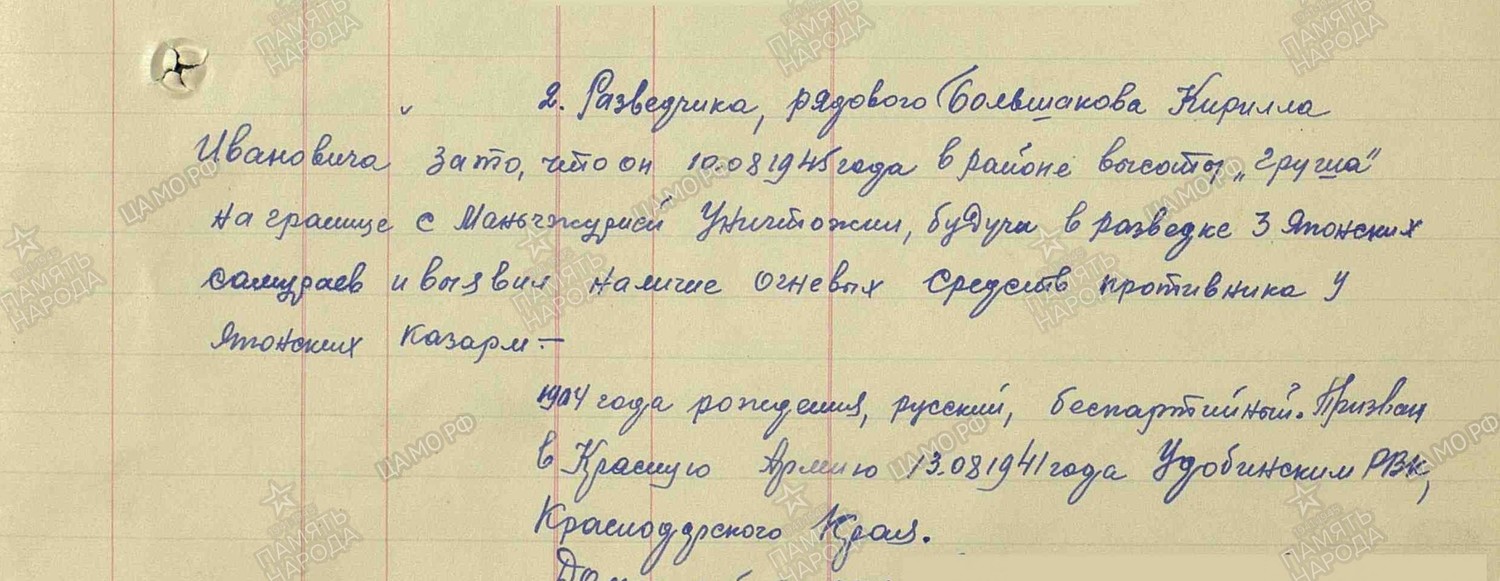 2. Разведчика, рядового Большакова Кирилла
Ивановича за то, что он 10.08 1945 года в районе высоты „Груша"
на границе с Маньчжурией уничтожил, будучи в разведке 3 Японских
самураев и выявил наличие огневых средств противника у
Японских казарм –
1904 года рождения, русский, беспартийный. Призван
в Красную Армию 13.08 1941 года Удобинским РВК,
Краснодарского Края.
ПАМЯТЬ НАРОДА
ЦАМО РФ